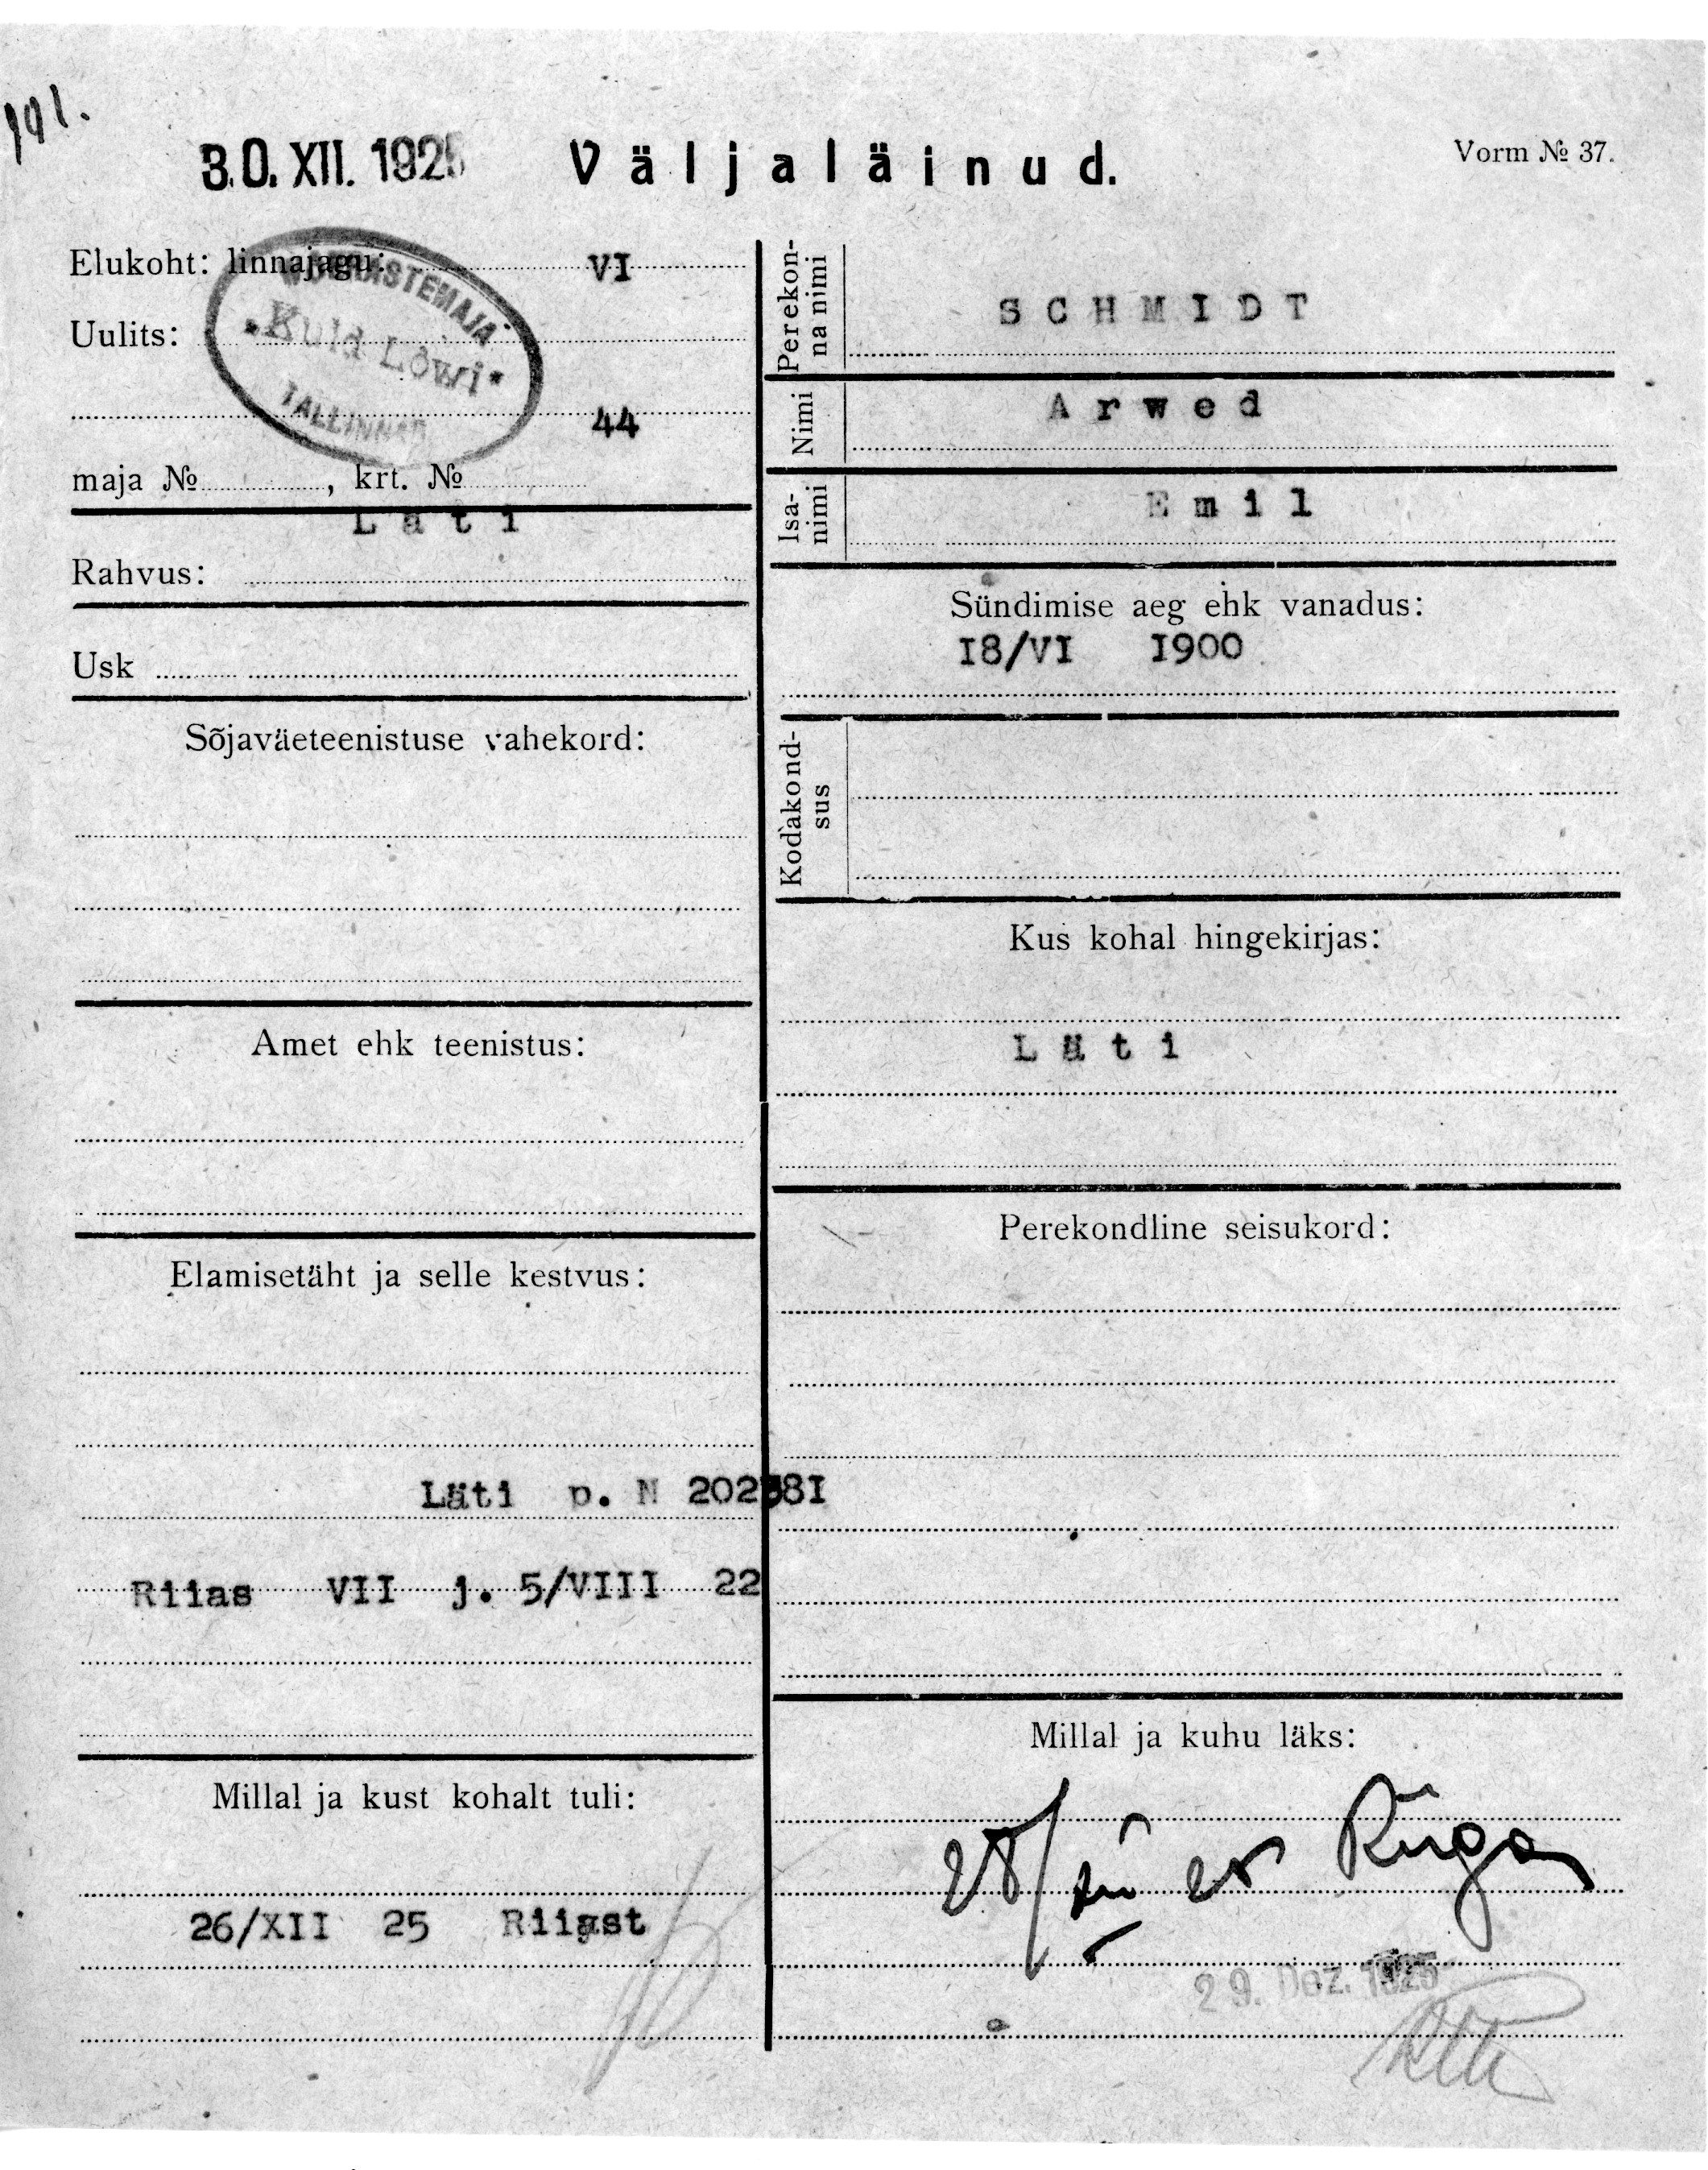 30. XII. 1925 Väljaläinud. Vorm № 37.
Elukoht: linnajagu: VI
VÕÕRASTEMAJA
"Kuld Lõwi"
TALLINNAS
Uulits:
44
maja № , krt. №
Läti
Rahvus:
Usk
Sõjaväeteenistuse vahekord:
Amet ehk teenistus:
Elamisetäht ja selle kestvus:
Läti p. N 202381
Riias VII j. 5/VIII 22
Millal ja kust kohalt tuli:
26/XII 25 Riiast
Perekon-
na nimi
SCHMIDT
Nimi
Arwed
Isa-
nimi
Emil
Sündimise aeg ehk vanadus:
I8/VI I900
Kodakond-
sus
Kus kohal hingekirjas:
Läti
Perekondline seisukord:
Millal ja kuhu läks:
28/XII 25 Riiga
29. Dez. 1925